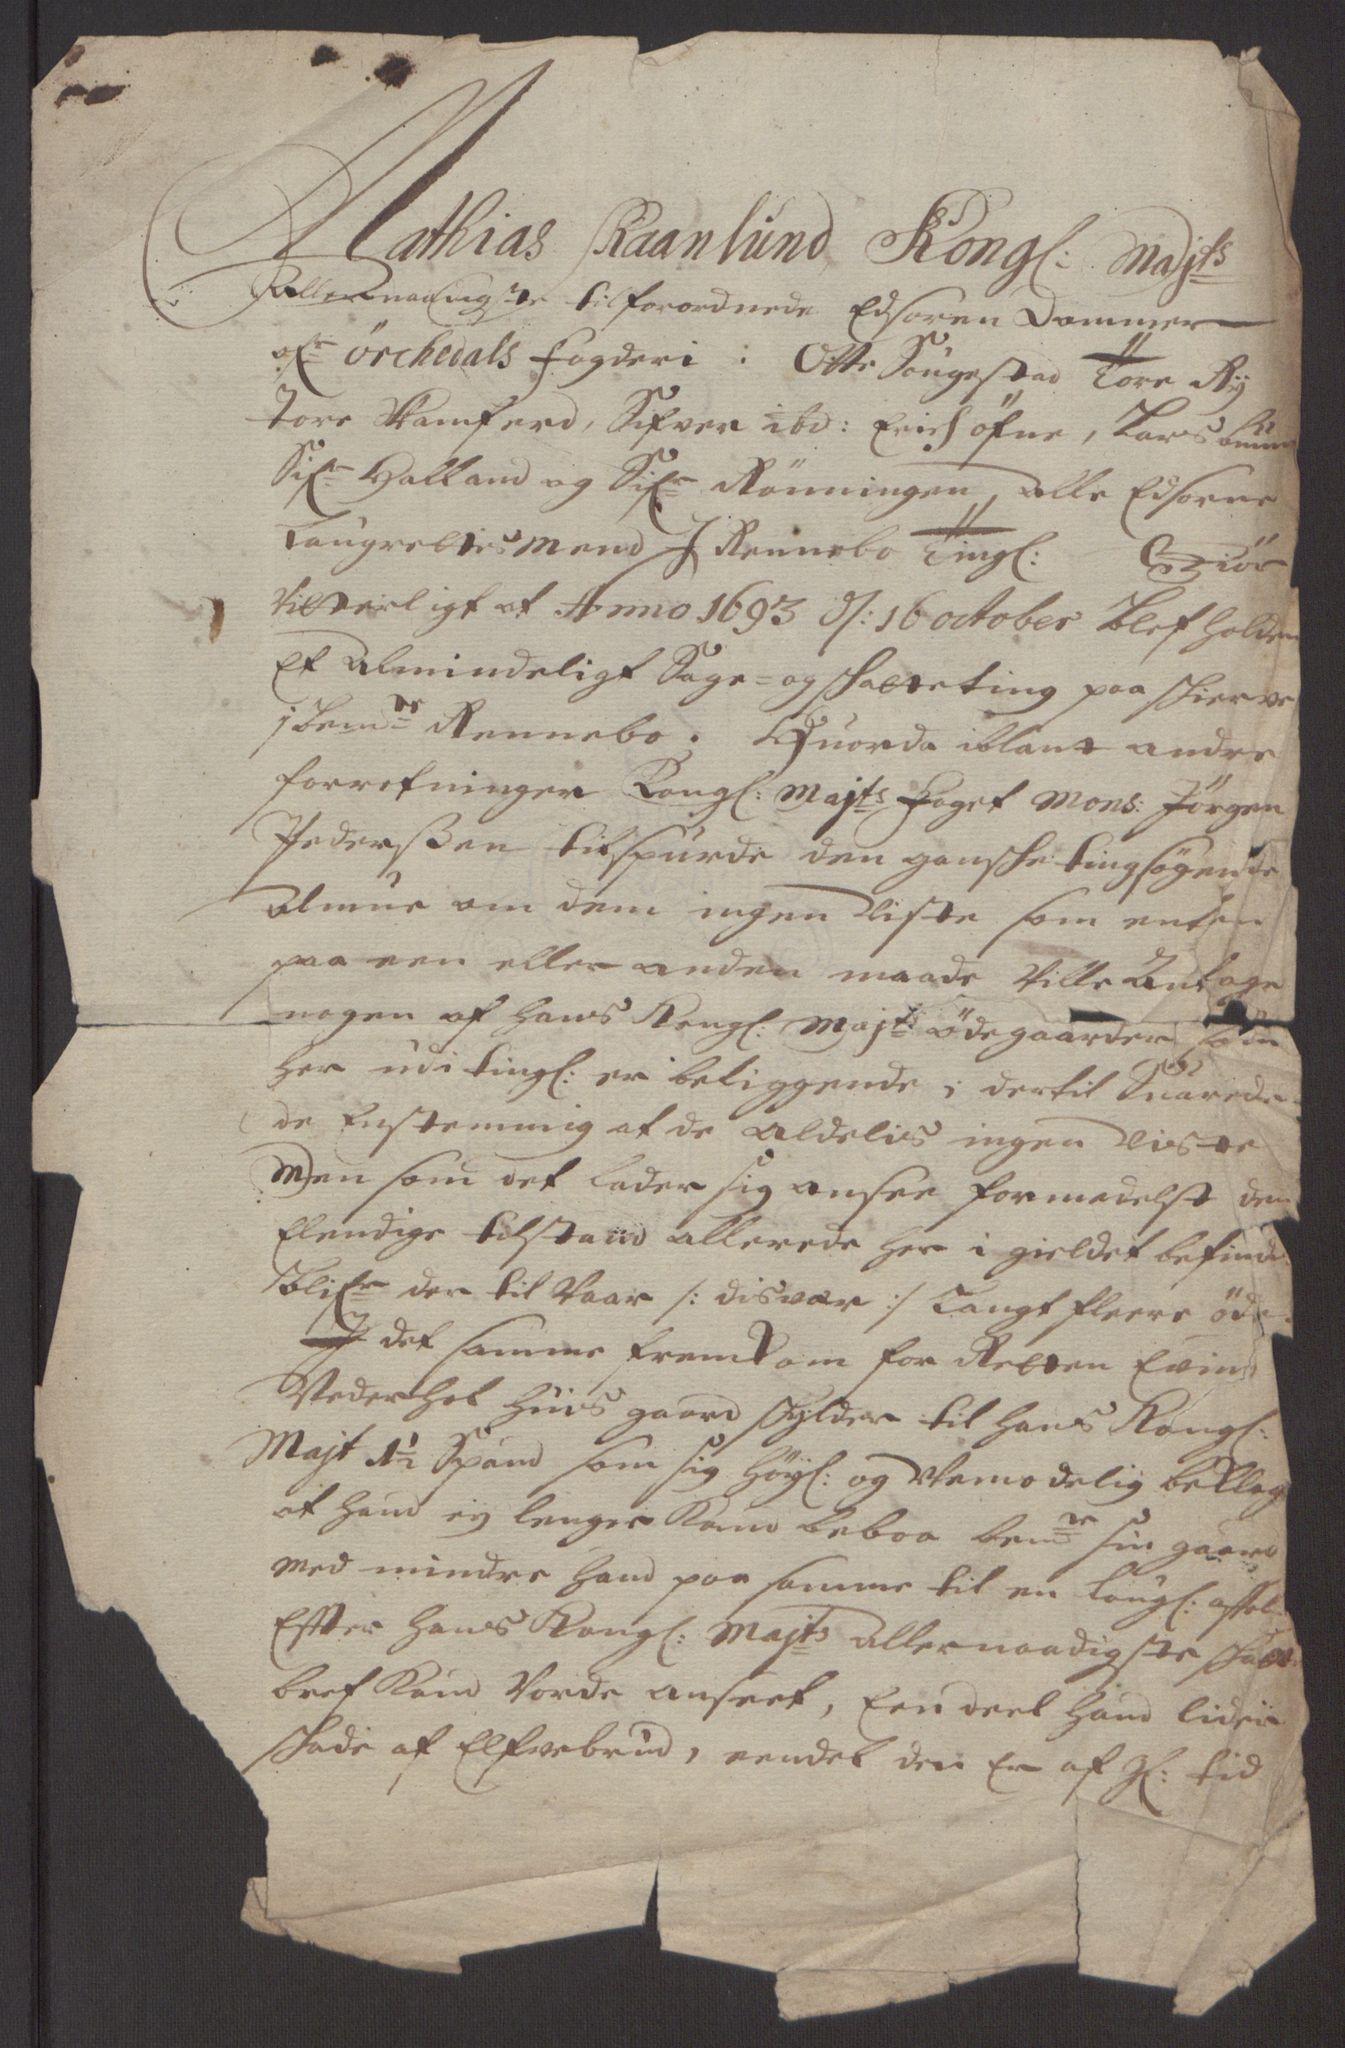 Mathias Raanlund Kongl: Majts
Allernaadigste tilforordnede Edsoren Dommer
ofr Örchedals fogderi : Otte Sougestad Tore Rÿ
Tore Kamferd, Sifver ibd: Erich öfne, Lars
Sifr Halland og Sifr Rönningen, alle Edsorne
Laugrettes Mend J Rennebo Tingl: Giör
Vitterligt at Anno 1693 d: 16 october blef holden
Et Almindeligt Sage= og Skatteting paa Skierve
j bemte Rennebo. Huorda iblant andre
forretninger Kongl: Majts Foget Mons: Jörgen
Pederßen tilspurde den gansche tingsögende
Almue om dem ingen Viste som enten
paa een eller anden maade Ville Antage
nogen af hans Kongl: Majts ödegaarder som
her udi tingl: er beliggende, dertil Suarede
de Enstemmig at de Aldelis ingen Viste
Men som det lader sig ansee formedelst den
Elendige tilstand allerede her i gieldet befind
blifr der til Vaar /: disvær :/ Langt fleere öde
J det samme fremkom for Retten Evind
Vederhol huis gaard skylder til hans Kongl:
Majt 1½ Spand som sig höyl: og Vemodelig beklag
at hand ej lenger Kand beboe bemte sin gaard
med mindre hand paa samme til en Lougl:
Efter hans Kongl: Majts Allernaadigste Skatte
bref Kand Vorde anseet, Een deel hand lider
skade af Elfvebrud, vendel den Er af gl: tid